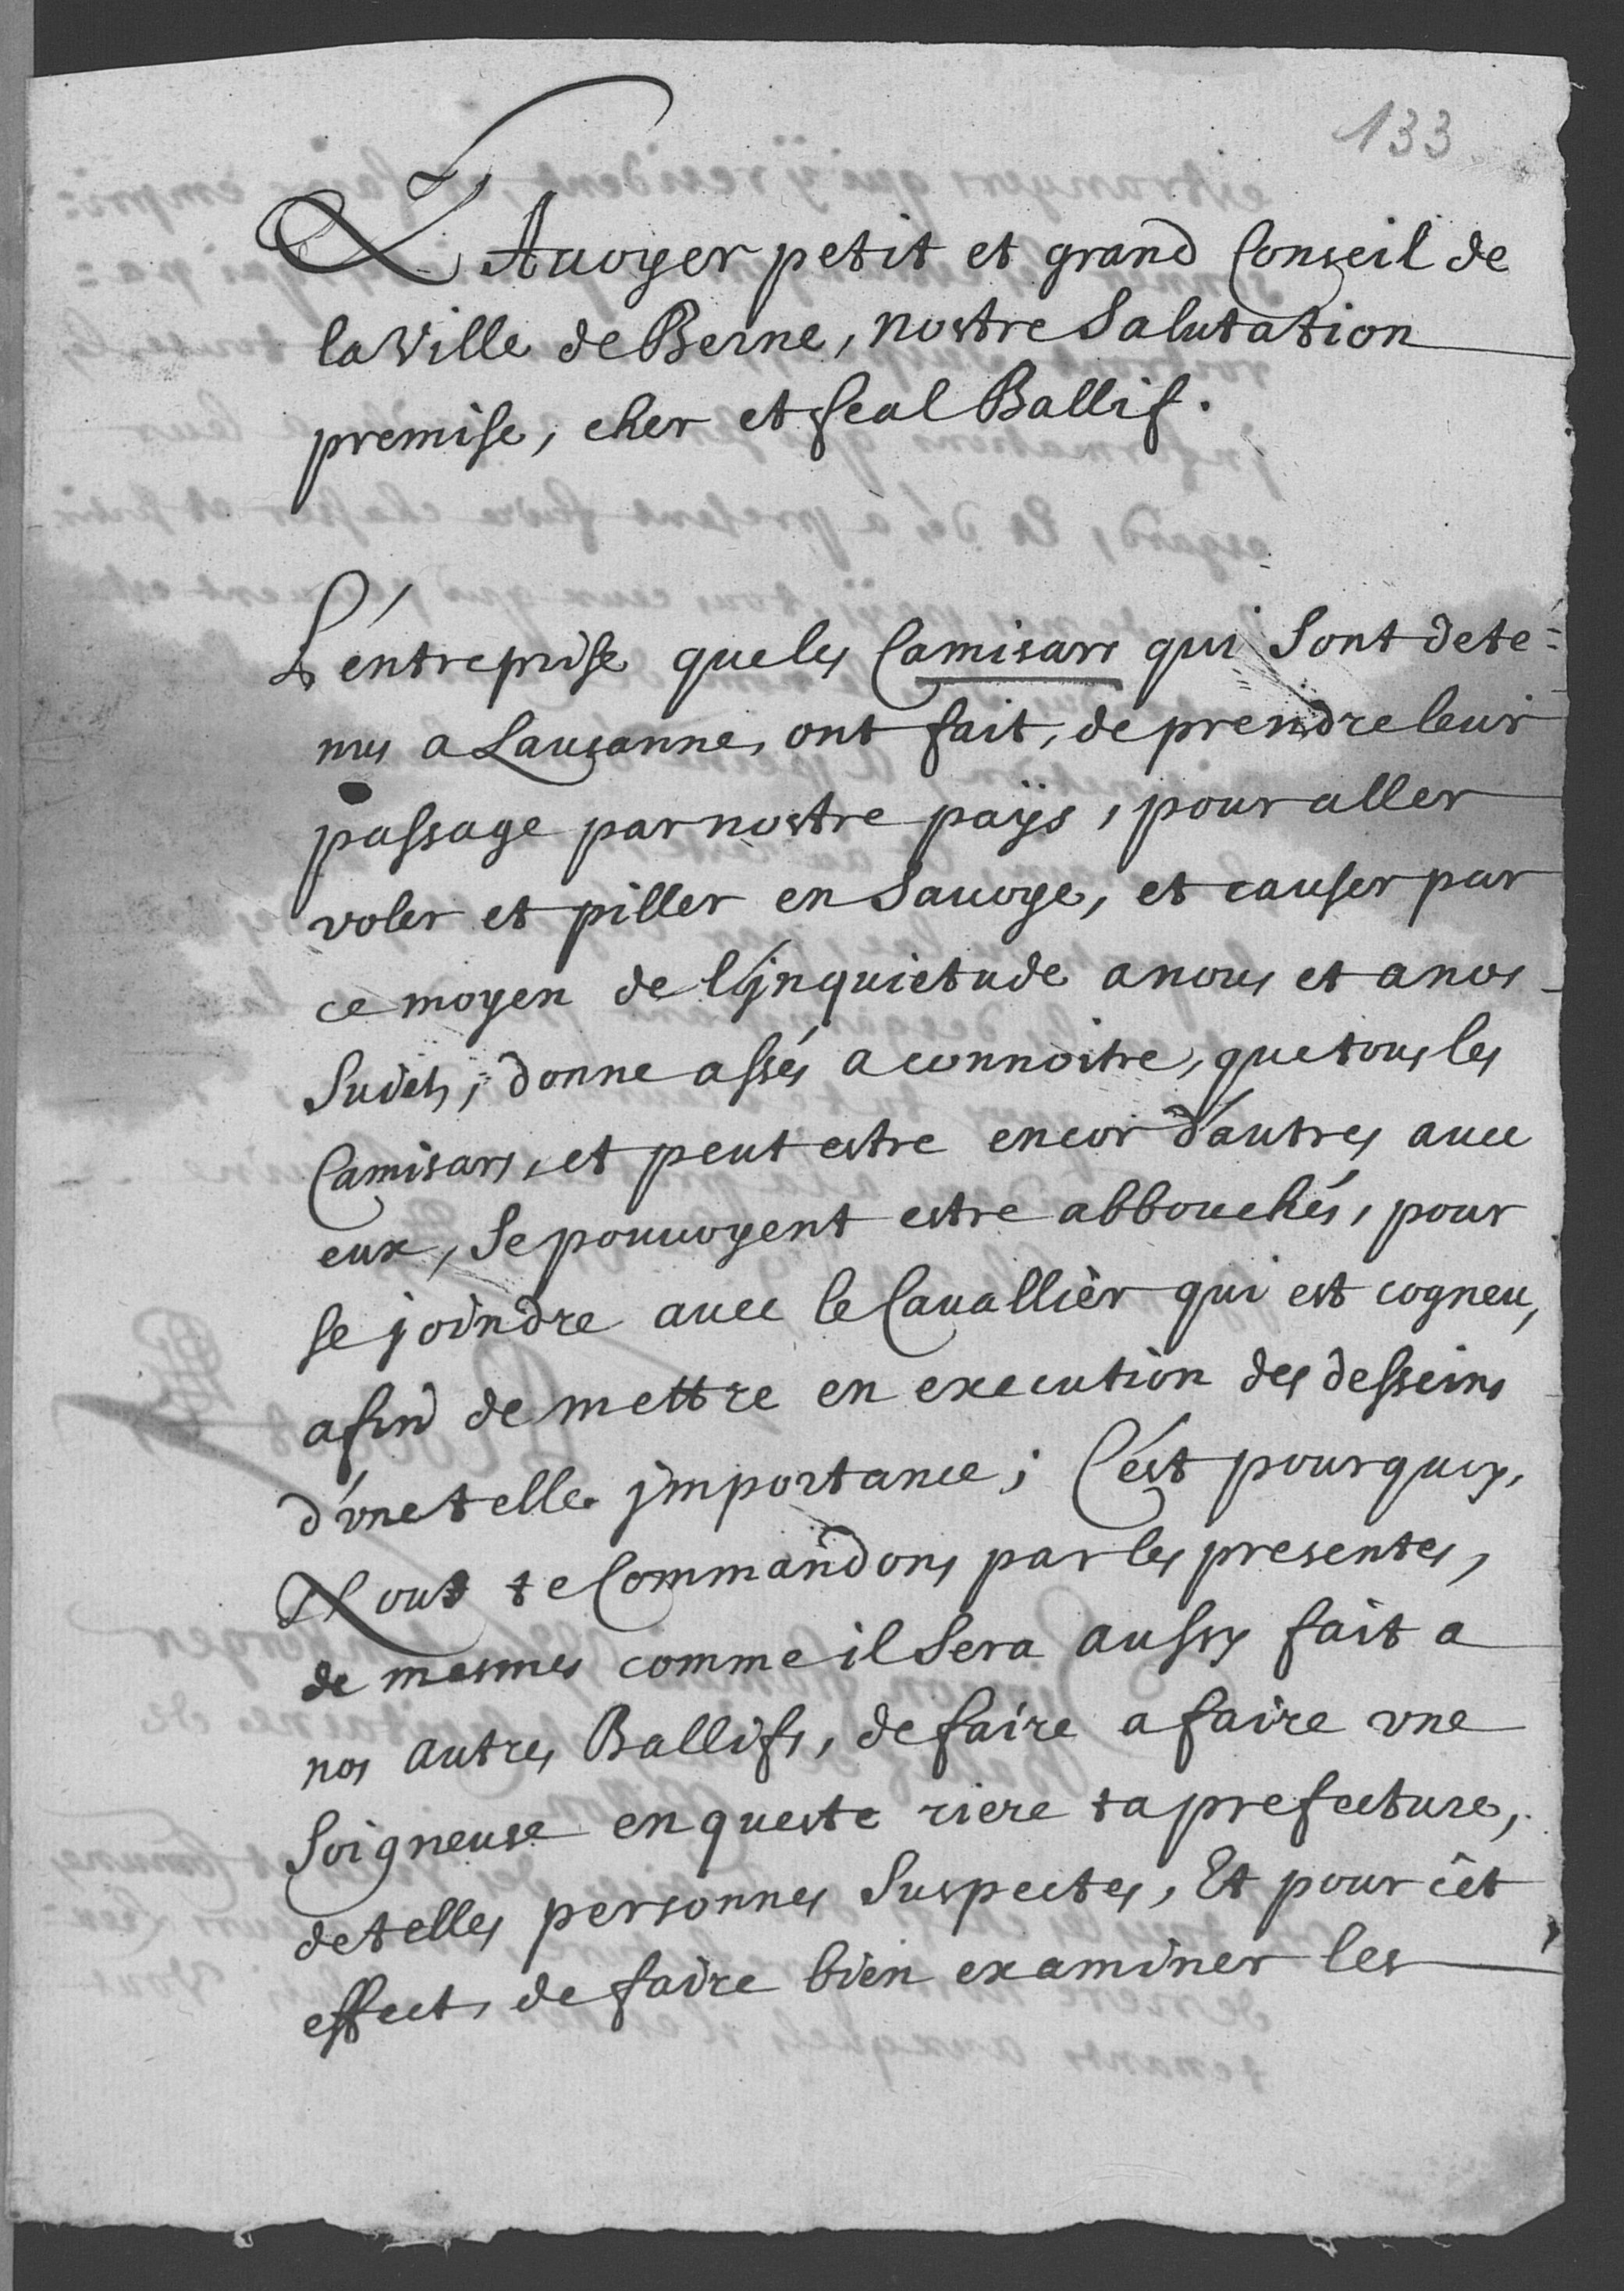 133
L'Auoyer petit et grand Conseil de
la Ville de Berne, nostre Salutation
premise, cher et feal Ballif.
L'entreprise que les Camisars qui Sont dete=
nus a Lausanne, ont fait, de prendre leur
passage par nostre paÿs, pour aller
voler et piller en Sauoye, et causer par
ce moyen de l'jnquietude a nous et a nos
Sudets, donne assés a connoitre, que tous les
Camisars, et peut estre encor d'autres auec
eux, Se pouuoyent estre abbouchés, pour
se joindre auec le Cauallier qui est cogneu,
afin de mettre en execution des desseins
d'vne telle jmportance; C'est pourquoy,
Nous te Commandons par les presentes,
de mesmes comme il Sera aussy fait a
nos autres Ballifs, de faire a faire vne
Soigneuse enqueste riere ta prefecture,
de telles personnes Suspectes, Et pour cêt
effect, de faire bien examiner les